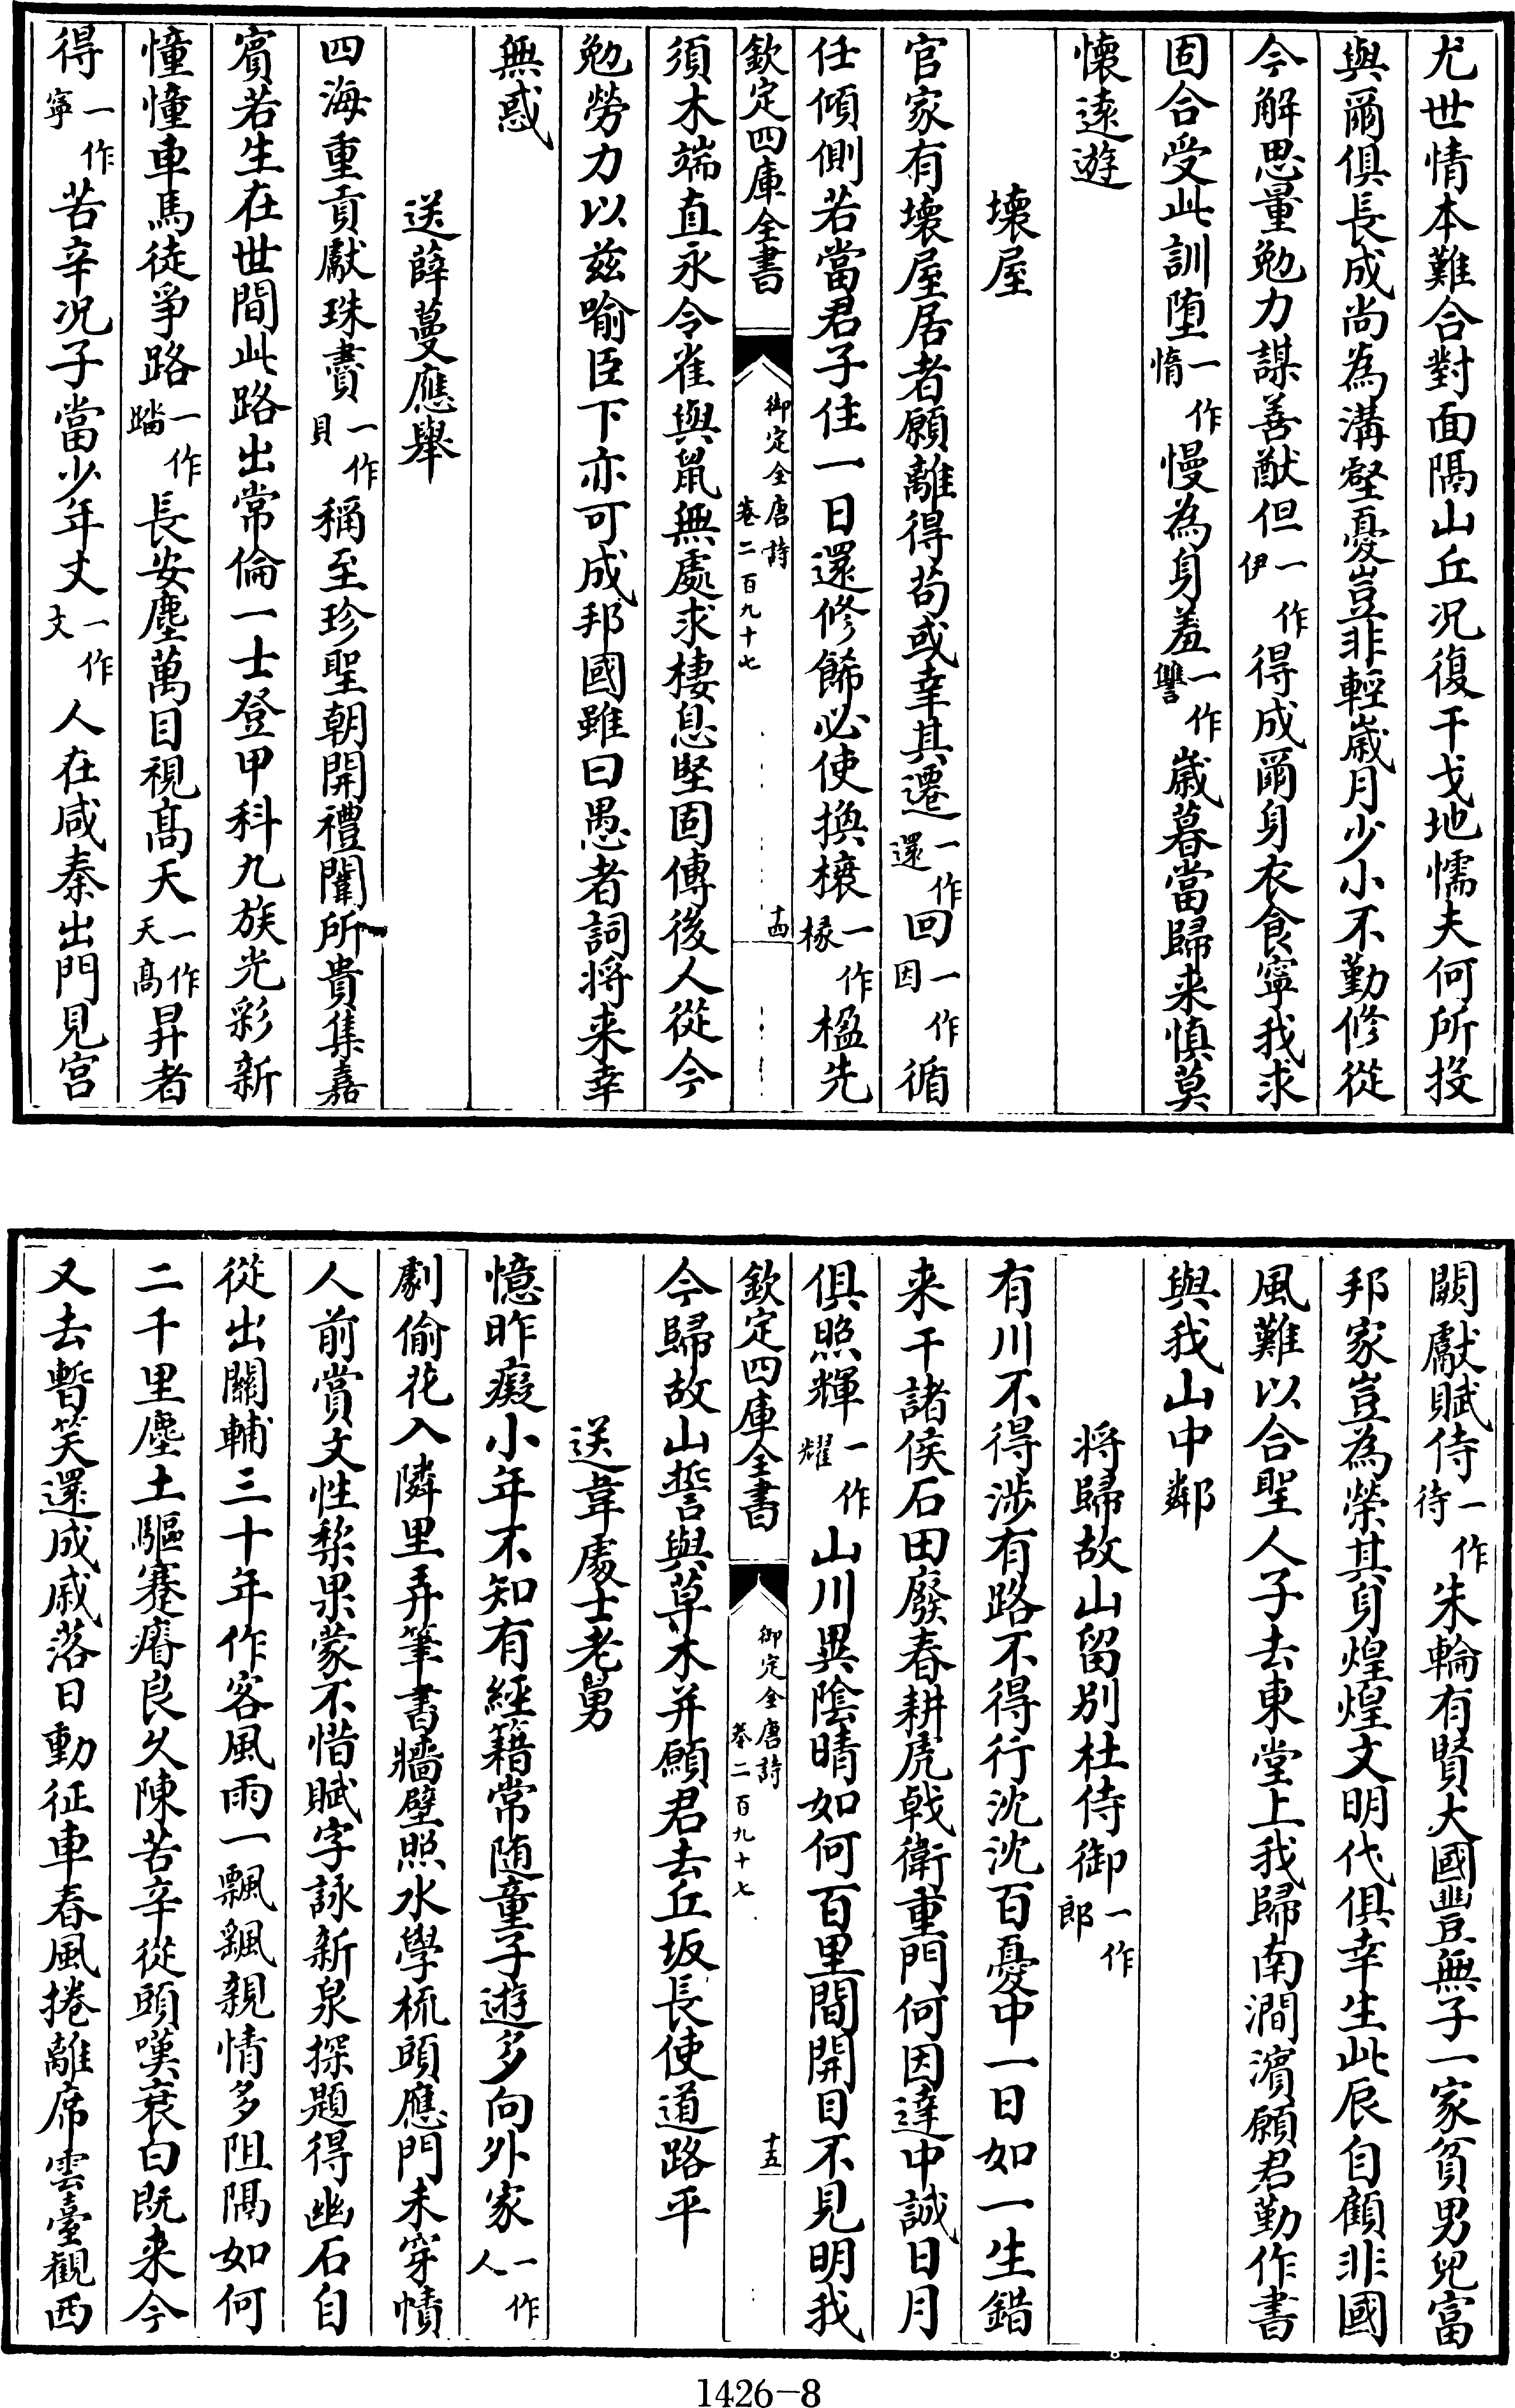 尤世情本難合對面隔山丘况復干戈地懦夫何所投
與爾俱長成尚為溝壑憂豈非輕歲月少小不勤修從
今解思量勉力謀善猷但一作伊得成爾身衣食寧我求
固合受此訓墮一作惰慢為身羞一作讐歲暮當歸来慎莫
懷遠遊
壊屋
官家有壊屋居者願離得苟或幸其遷一作還回一作因循
任傾側若當君子住一日還修餙必使換榱一作椽楹先
欽定四庫全書
御定全唐詩
卷二百九十七
十四
須木端直永令雀與鼠無處求棲息堅固傳後人從今
勉勞力以兹喻臣下亦可成邦國雖曰愚者詞將来幸
無惑
送薛蔓應舉
四海重貢獻珠賮一作貝稱至珍聖朝開禮闈所貴集嘉
賓若生在世間此路出常倫一士登甲科九族光彩新
憧憧車馬徒爭路一作踏長安塵萬目視髙天一作天髙昇者
得一作寧苦辛况子當少年丈一作文人在咸秦出門見宫
闕獻賦侍一作待朱輪有賢大國豐無子一家貧男兒富
邦家豈為榮其身煌煌文明代俱幸生此辰自顧非國
風難以合聖人子去東堂上我歸南澗濱願君勤作書
與我山中鄰
将歸故山留别杜侍御一作郎
有川不得渉有路不得行沈沈百憂中一日如一生錯
来干諸侯石田廢春耕虎戟衛重門何因達中誠日月
俱照輝一作耀山川異陰晴如何百里間開目不見明我
欽定四庫全書
御定全唐詩
卷二百九十七
十五
今歸故山誓與草木并願君去丘坂長使道路平
送韋處士老舅
憶昨癡小年不知有經籍常随童子遊多向外家一作人
劇偷花入隣里弄筆書牆壁照水學梳頭應門未穿幘
人前賞文性棃果蒙不惜賦字詠新泉探題得幽石自
從出關輔三十年作客風雨一飄颻親情多阻隔如何
二千里塵土驅蹇瘠良久陳苦辛從頭嘆衰白既来今
又去暫笑還成戚落日動征車春風捲離席雲臺觀西
1426-8